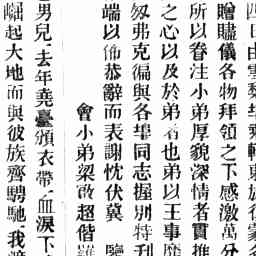 四日由雪黎
贈贐儀各物拜領之下感激萬分
所以眷注小弟厚貌深情者實推
之心以及於弟者也弟以王事靡
匆弗克徧與各埠同志握別特刊
端以佈恭辭而表謝忱伏冀 鑒
會小弟梁啟超偕羅
男兒、去年堯臺頒衣帶、血淚下
崛起大地而與彼族齊騁馳、我